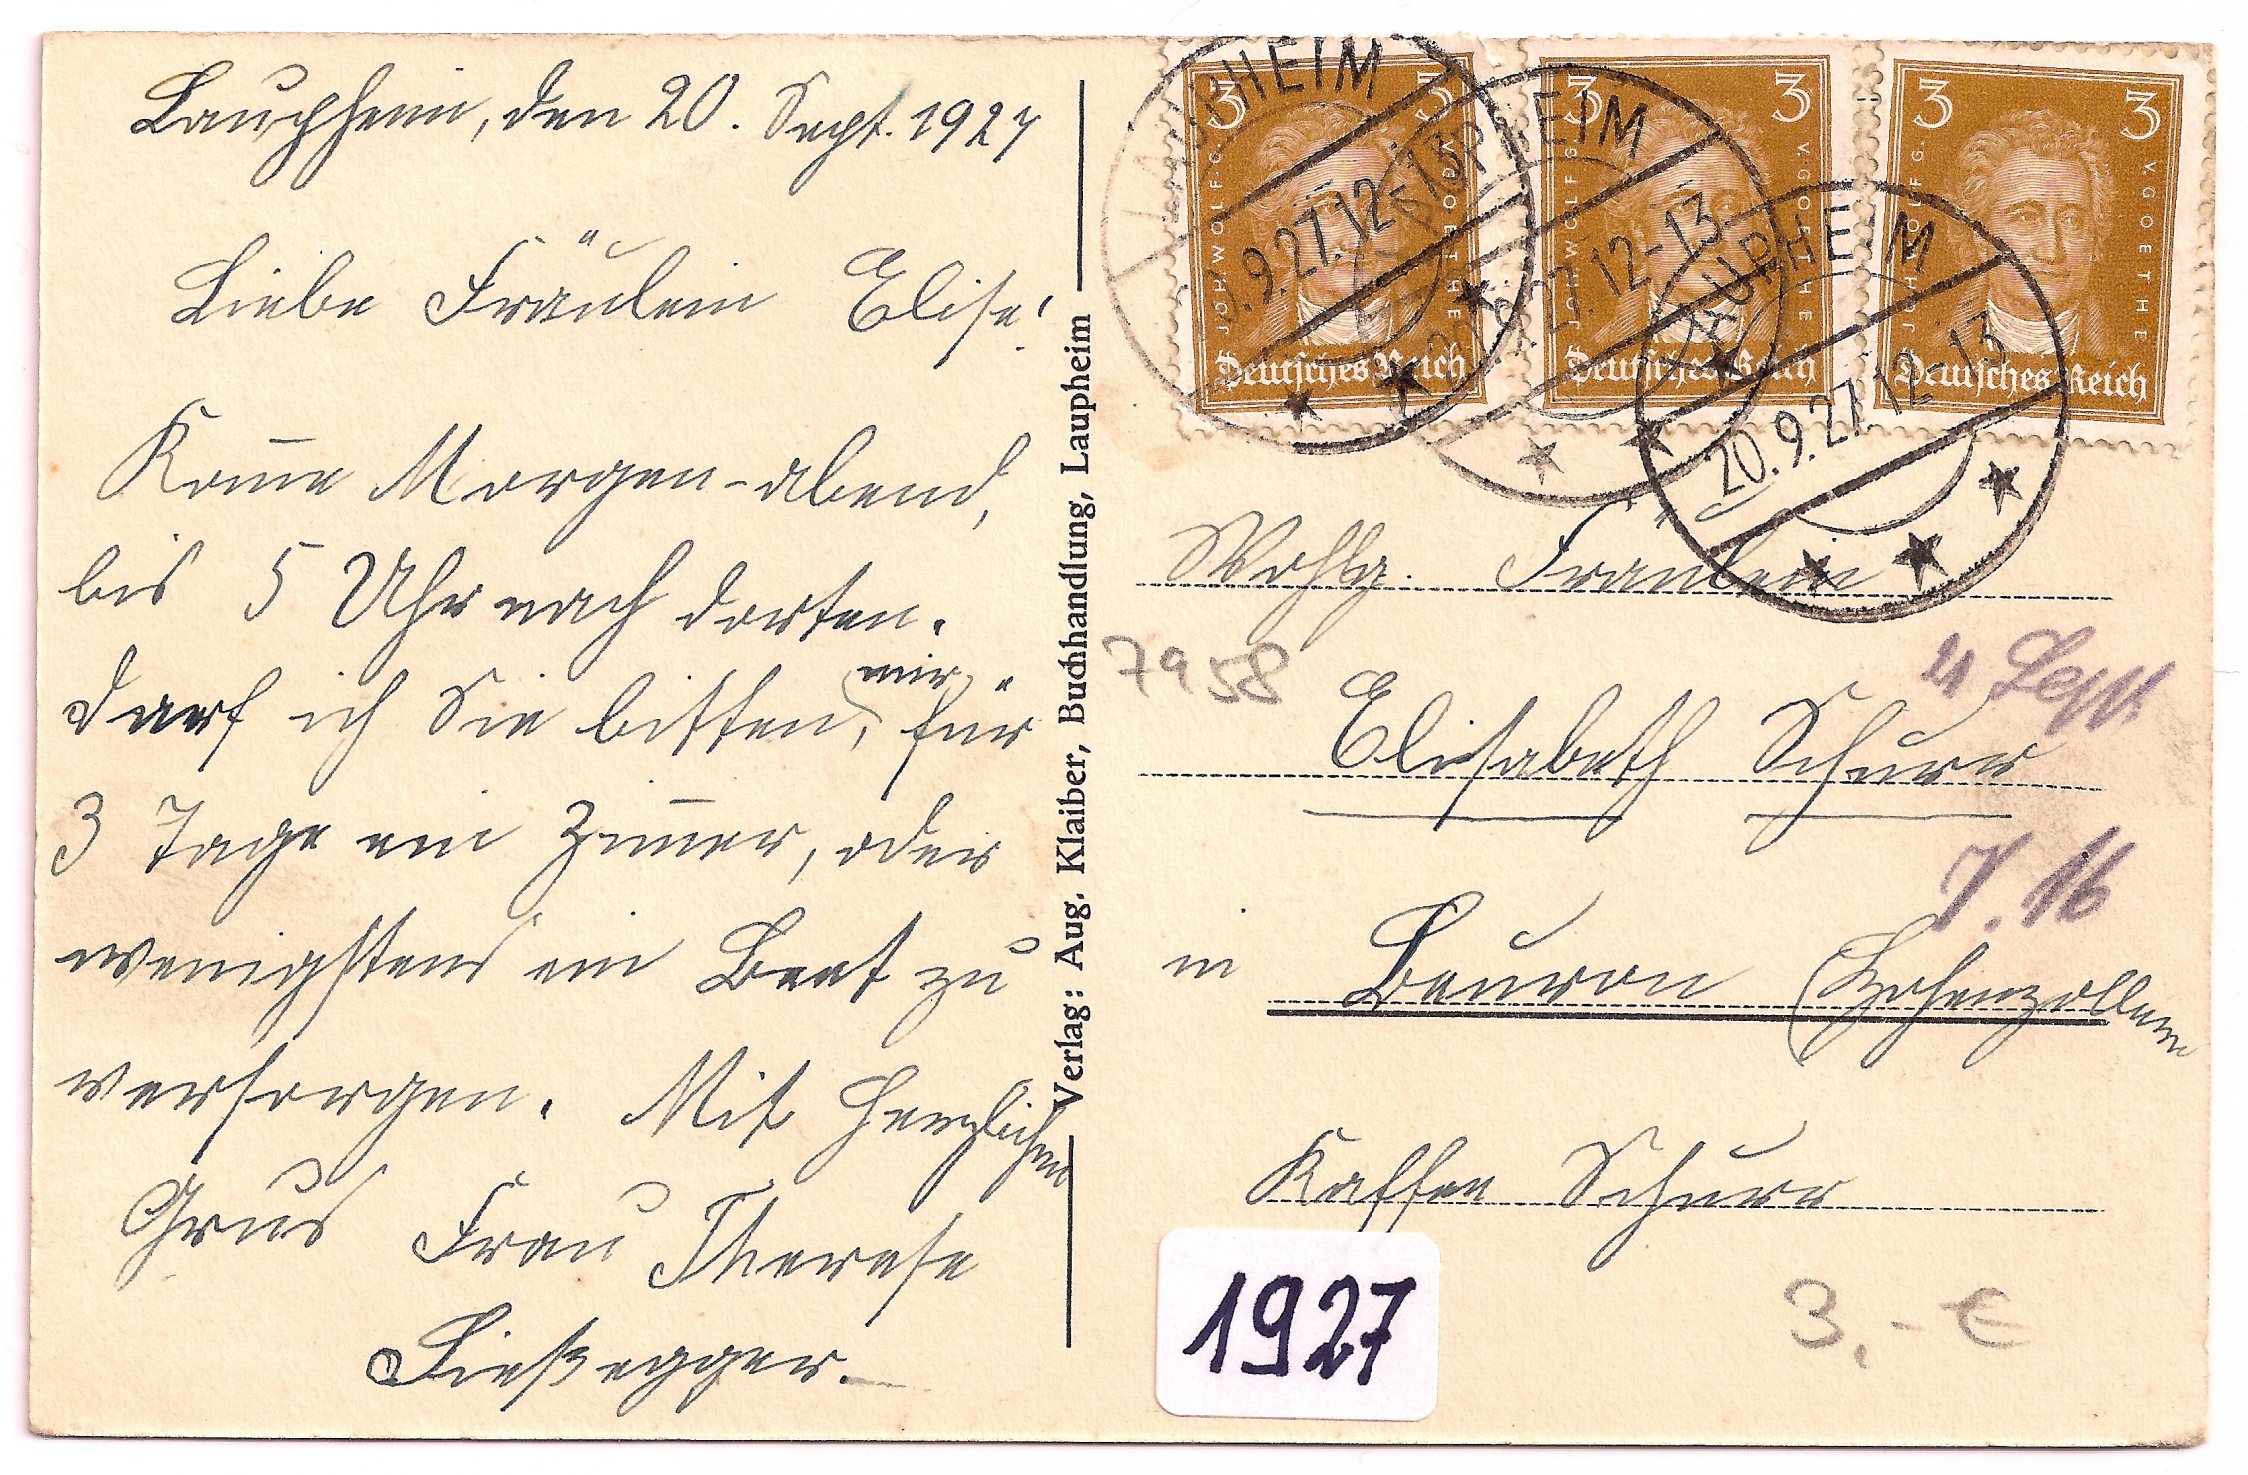 Laupheim, den 20. Sept. 1927
Liebe Fräulein Elise!
Kom̄e Morgen-abend,
bis 5 Uhr nach dorten.
Darf ich Sie bitten, mir für
3 Tage ein Zim̄er, oder
wenigstens ein Beet zu
versorgen. Mit herzlichen
Grus Frau Therese
Verlag: Aug. Klaiber, Buchhandlung, Laupheim
LAUPHEIM
20.9.27.12-13
LAUPHEIM
20.9.27.12-13
LAUPHEIM
20.9.27.12-13
3 3
JOH. WOLFG. V. GOETHE
Deutsches Reich
3 3
JOH. WOLFG. V. GOETHE
Deutsches Reich
3 3
JOH. WOLFG. V. GOETHE
Deutsches Reich
Wohlg. Fräulein
7958
21 Sept.
Elisabeth Schurr
in Beuron (Hohenzollern
Kaffee Schurr
1927
3,- €